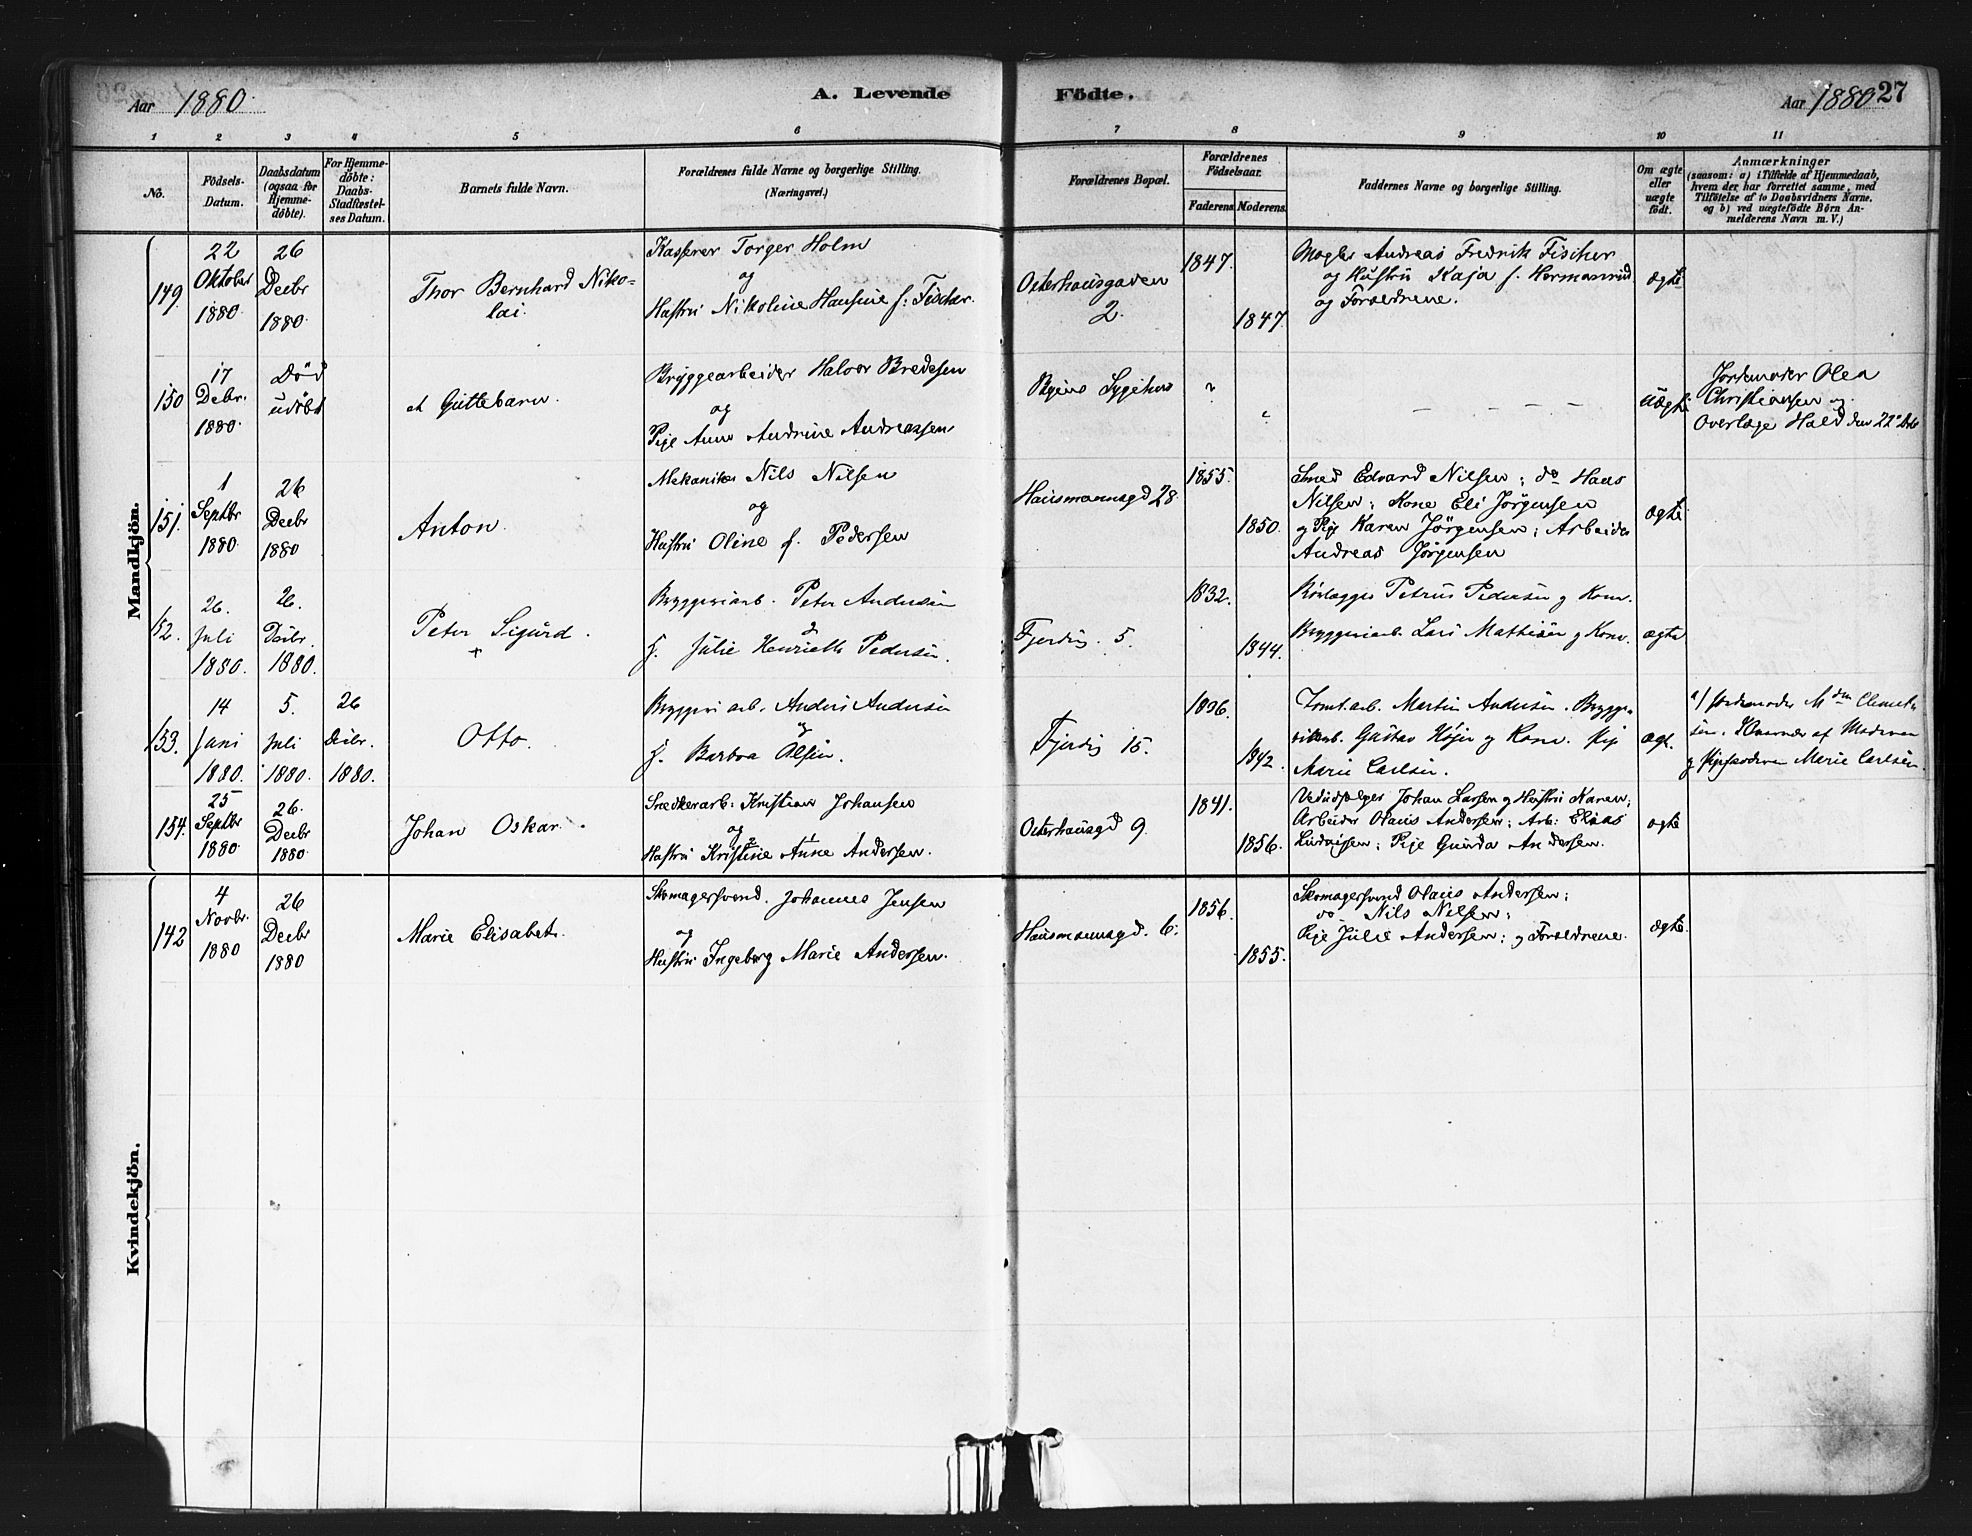 Aar 1880. A. Levende Födte. Aar 1880 27
1 2 3 4 5 6 7 8 9 10 11
No.
Födsels-
Datum.
Daabsdatum
(ogsaa for
Hjemme-
döbte).
For Hjemme-
döbte:
Daabs-
Stadfæstel-
ses Datum.
Barnets fulde Navn.
Forældrenes fulde Navne og borgerlige Stilling.
(Næringsvei.)
Forældrenes Bopæl.
Forældrenes
Födselsaar.
Faderens. Moderens.
Faddernes Navne og borgerlige Stilling.
Om ægte
eller
uægte
födt.
Anmærkninger
(saasom: a) i Tilfælde af Hjemmedaab,
hvem der har forrettet samme, med
Tilföielse af to Daabsvidners Navne,
og b) ved uægtefödte Börn An-
melderens Navn m. V.)
Mandkjön.
149.
22
Oktober
1880.
26
Decbr
1880.
Thor Bernhard Niko-
lai.
Kasserer Torger Holm
og
Hustru Nikoline Hansine f: Fischer.
Osterhausgaden
2.
1847.
1847.
Mægler Andreas Fredrik Fischer
og Hustru Kaja f. Hermansrud
og Forældrene.
ægte
150
17
Debr.
1880.
Död
udöbt
et Guttebarn.
Bryggearbeider Halvor Bredesen
og
Pige Anne Andrine Andreassen
Byens Sygehus
"
"
— — — —
Uægte
Jordemoder Olea
Christiansen og
Overlæge Hald den 22de Debr
151.
1
Septbr
1880.
26
Decbr
1880
Anton.
Mekaniker Nils Nilsen
og
Hustru Oline f. Pedersen
Hausmannsgd 28.
1855.
1850.
Smed Edvard Nilsen; do Hans
Nilsen; Kone Eli Jörgensen
og Pige Karen Jörgensen; Arbeider
Andreas Jörgensen
ægte
152.
26.
Juli
1880.
26.
Decbr.
1880.
Peter Sigurd.
+
Bryggeriarb. Peter Andersen
og
f. Julie Henriette Pedersen.
Fjerding. 5.
1832.
1844.
Rörlægger Petrus Pedersen og Kone.
Bryggeriarb. Lars Mathisen og Kone.
ægte
153.
14
Juni
1880.
5.
Juli
1880.
26
Decbr.
1880.
Otto.
Bryggeri arb. Anders Andersen
og
f. Barbra Olsen.
Fjerding 15.
1842.
Tomt.arb. Martin Andersen. Brygge-
riarb. Gustav Höjer og Kone. Pige
Marie Carlsen.
ægt.
a) Jordemoder Mdm Clement-
sen. Nærvær af Moderen
og Pige Marie Carlsen.
154.
25
Septbr
1880.
26.
Decbr
1880
Johan Oskar.
Snedkerarb: Kristian Johansen
og
2 1
Hustru Kristine Anne Andersen.
Osterhausgd 9.
1841.
1856.
Vedudsælger Johan Larsen og Hustru Karen;
Arbeider Olaus Andersen; Arb: Elias
Ludvigsen; Pige Gunda Andersen.
ægte
Kvindekjön.
142
4
Novbr.
1880
26
Decbr
1880
Marie Elisabet.
Skomagersvend. Johannes Jensen
og
Hustru Ingeborg Marie Andersen.
Hausmannsgd. 6.
1856.
1855.
Skomagersvend Olaus Andersen;
do Nils Nilsen;
Pige Julie Andersen; og Forældrene.
ægte.